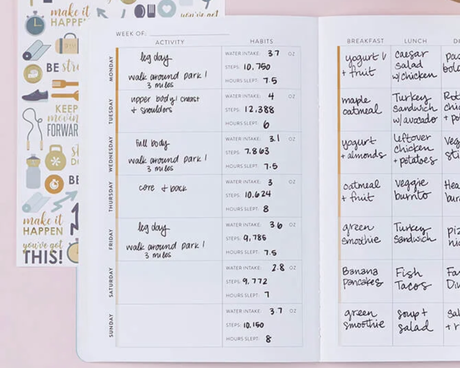 make it
HAPPEN
you've got
BE
KEEP
moving
FORWARD
make it
HAPPEN
you've got
THIS!
WEEK OF:
ACTIVITY
HABITS
MONDAY
leg day
walk around park!
3 miles
WATER INTAKE: 3.7 OZ
STEPS: 10.750
HOURS SLEPT: 7.5
TUESDAY
upper body/chest
+ shoulders
WATER INTAKE: 4 OZ
STEPS: 12.388
HOURS SLEPT: 6
WEDNESDAY
full body
walk around park!
3 miles
WATER INTAKE: 3.1 OZ
STEPS: 7.863
HOURS SLEPT: 7.5
THURSDAY
core + back
WATER INTAKE: 3 OZ
STEPS: 10.624
HOURS SLEPT: 8
FRIDAY
leg day
walk around park!
3 miles
WATER INTAKE: 3.6 OZ
STEPS: 9,785
HOURS SLEPT: 7.5
SATURDAY
WATER INTAKE: 2.8 OZ
STEPS: 9,772
HOURS SLEPT: 7
SUNDAY
WATER INTAKE: 3.7 OZ
STEPS: 10.150
HOURS SLEPT: 8
BREAKFAST
LUNCH
yogurt
+ fruit
caesar
salad
w/chicken
maple
oatmeal
Turkey
sandwich
w/avocado
yogurt
+ almonds
leftover
chicken
+ potatoes
oatmeal
+ fruit
veggie
burrito
green
smoothie
Turkey
sandwich
Banana
pancakes
Fish
Tacos
green
smoothie
soup +
salad